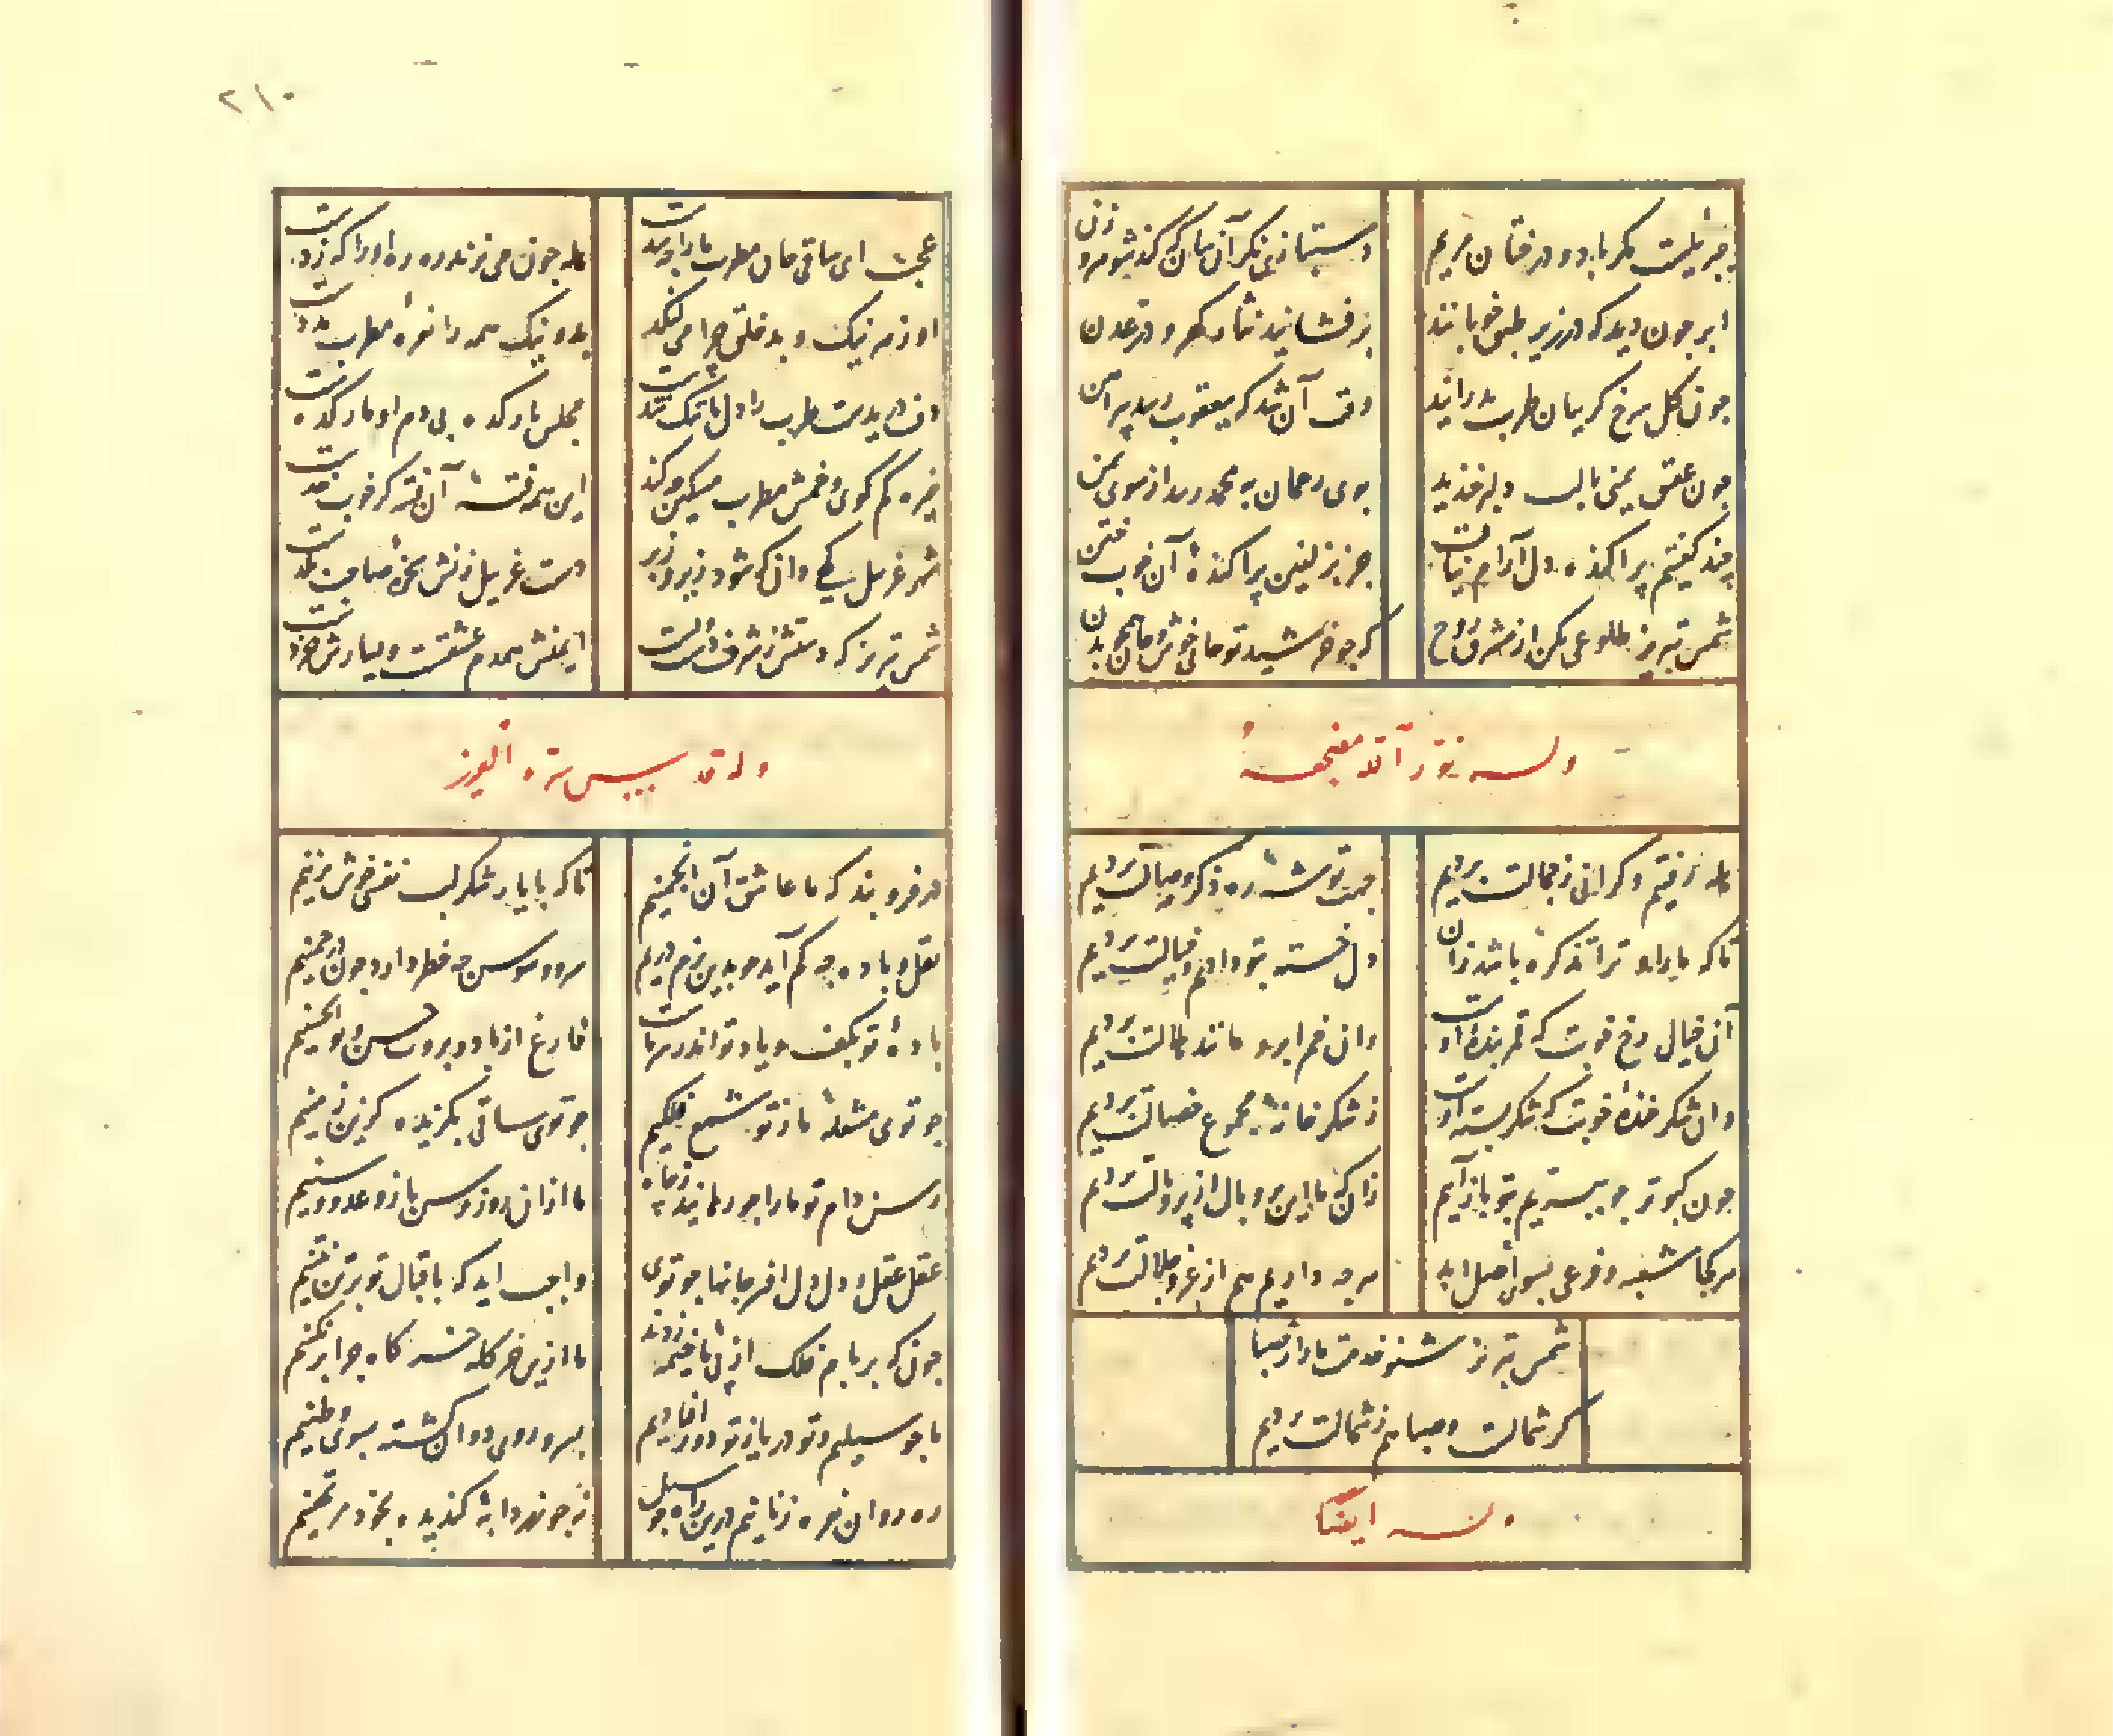 جبرئیلست مکر باد و درختان مریم
دست بازی نکر آن سان که کند شوهر و زن
ابر چون دید که در زیر طبق خوبانند
برفشانید نثار کهر و در عدن
چون کل سرخ کریبان طرب بدرانید
وقت آن شد که بیعقوب رسد پیراهن
چون عقیق یمنی لب دلبر خندید
بوی رحمان به محمد رسد از سوی یمن
چند کفتیم پراکنده دل آرام نیافت
جز بر زلفین پراکنده آن خوب ختن
شمس تبریز طلوعی بکن از مشرق روح
که چو خورشید تو جانی و جهان جمله بدن
وله نور الله مضجعه
ما برفتیم و کرانی ز جمالت بردیم
جهت توشه ره ذکر وصالت بردیم
تا که ما را و ترا تذکره باشد زان
دل خسته بتو دادیم و خیالت بردیم
آن خیال رخ خوبت که قمر بنده اوست
وان خم ابروی مانند هلالت بردیم
وان شکر خنده خوبت که شکر بسته اوست
ز شکر خانه مجموع خصالت بردیم
چون کبوتر چو بپریم بتو باز آییم
زانکه ما این پر و بال از پر و بالت بردیم
هر کجا شعبه و فرعی بسوی اصل اید
هر چه داریم هم از عز و جلالت بردیم
شمس تبریز شنو خدمت ما را ز صبا
کر شمالست و صبا هم ز شمالت بردیم
وله ایضا
۲۱۰
عجب ای ساقی جان مطرب ما را چه شدست
هله چون می نزند ره ره او را که زدست
او ز هر نیک و بد خلق چرا می لنکد
بد و نیک همه را نعره مطرب مددست
دف دریدست طرب را دل ما تنک شدست
مجلس یارکده بی دم او بارکدست
خیره کم کوی و خمش مطرب مسکین چه کند
این همه فتنه آن فتنه کر خوب خدست
شمس تبریز که دستش ز شرف
وله قدس سره العزیز
در فرو بند که ما عاشق آن انجمنیم
تا که با یار شکرلب نفسی خوش بزنیم
نقل و باده چه کم آید چو بدین بزم دریم
سرو و سوسن چه خطر دارد چون در چمنیم
باده تو بکف و باد تو اندر سر ماست
فارغ از باد و بروت حسن و بوالحسنیم
چو توی مشعله ما ز تو شمع فلکیم
چو توی ساقی بکزیده کزین زمنیم
رسن دام تو ما را چو رهانید ز چاه
ما ازان روز رسن باز و عدو رسنیم
عقل عقل و دل دل افر جانها چو توی
واجب اید که باقبال تو برتن نتنیم
چون که بر بام فلک از پی ما خیمه زدند
ما ازین خرکله خرکاه چرا برنکنیم
ما چو سیلیم و تو دریا ز تو دور افتادیم
بسر و روی دوان کشته بسوی وطنیم
ره روان نعره زنانیم درین راه چو سیل
نه چو کردابه کندیده بخود مرتهنیم